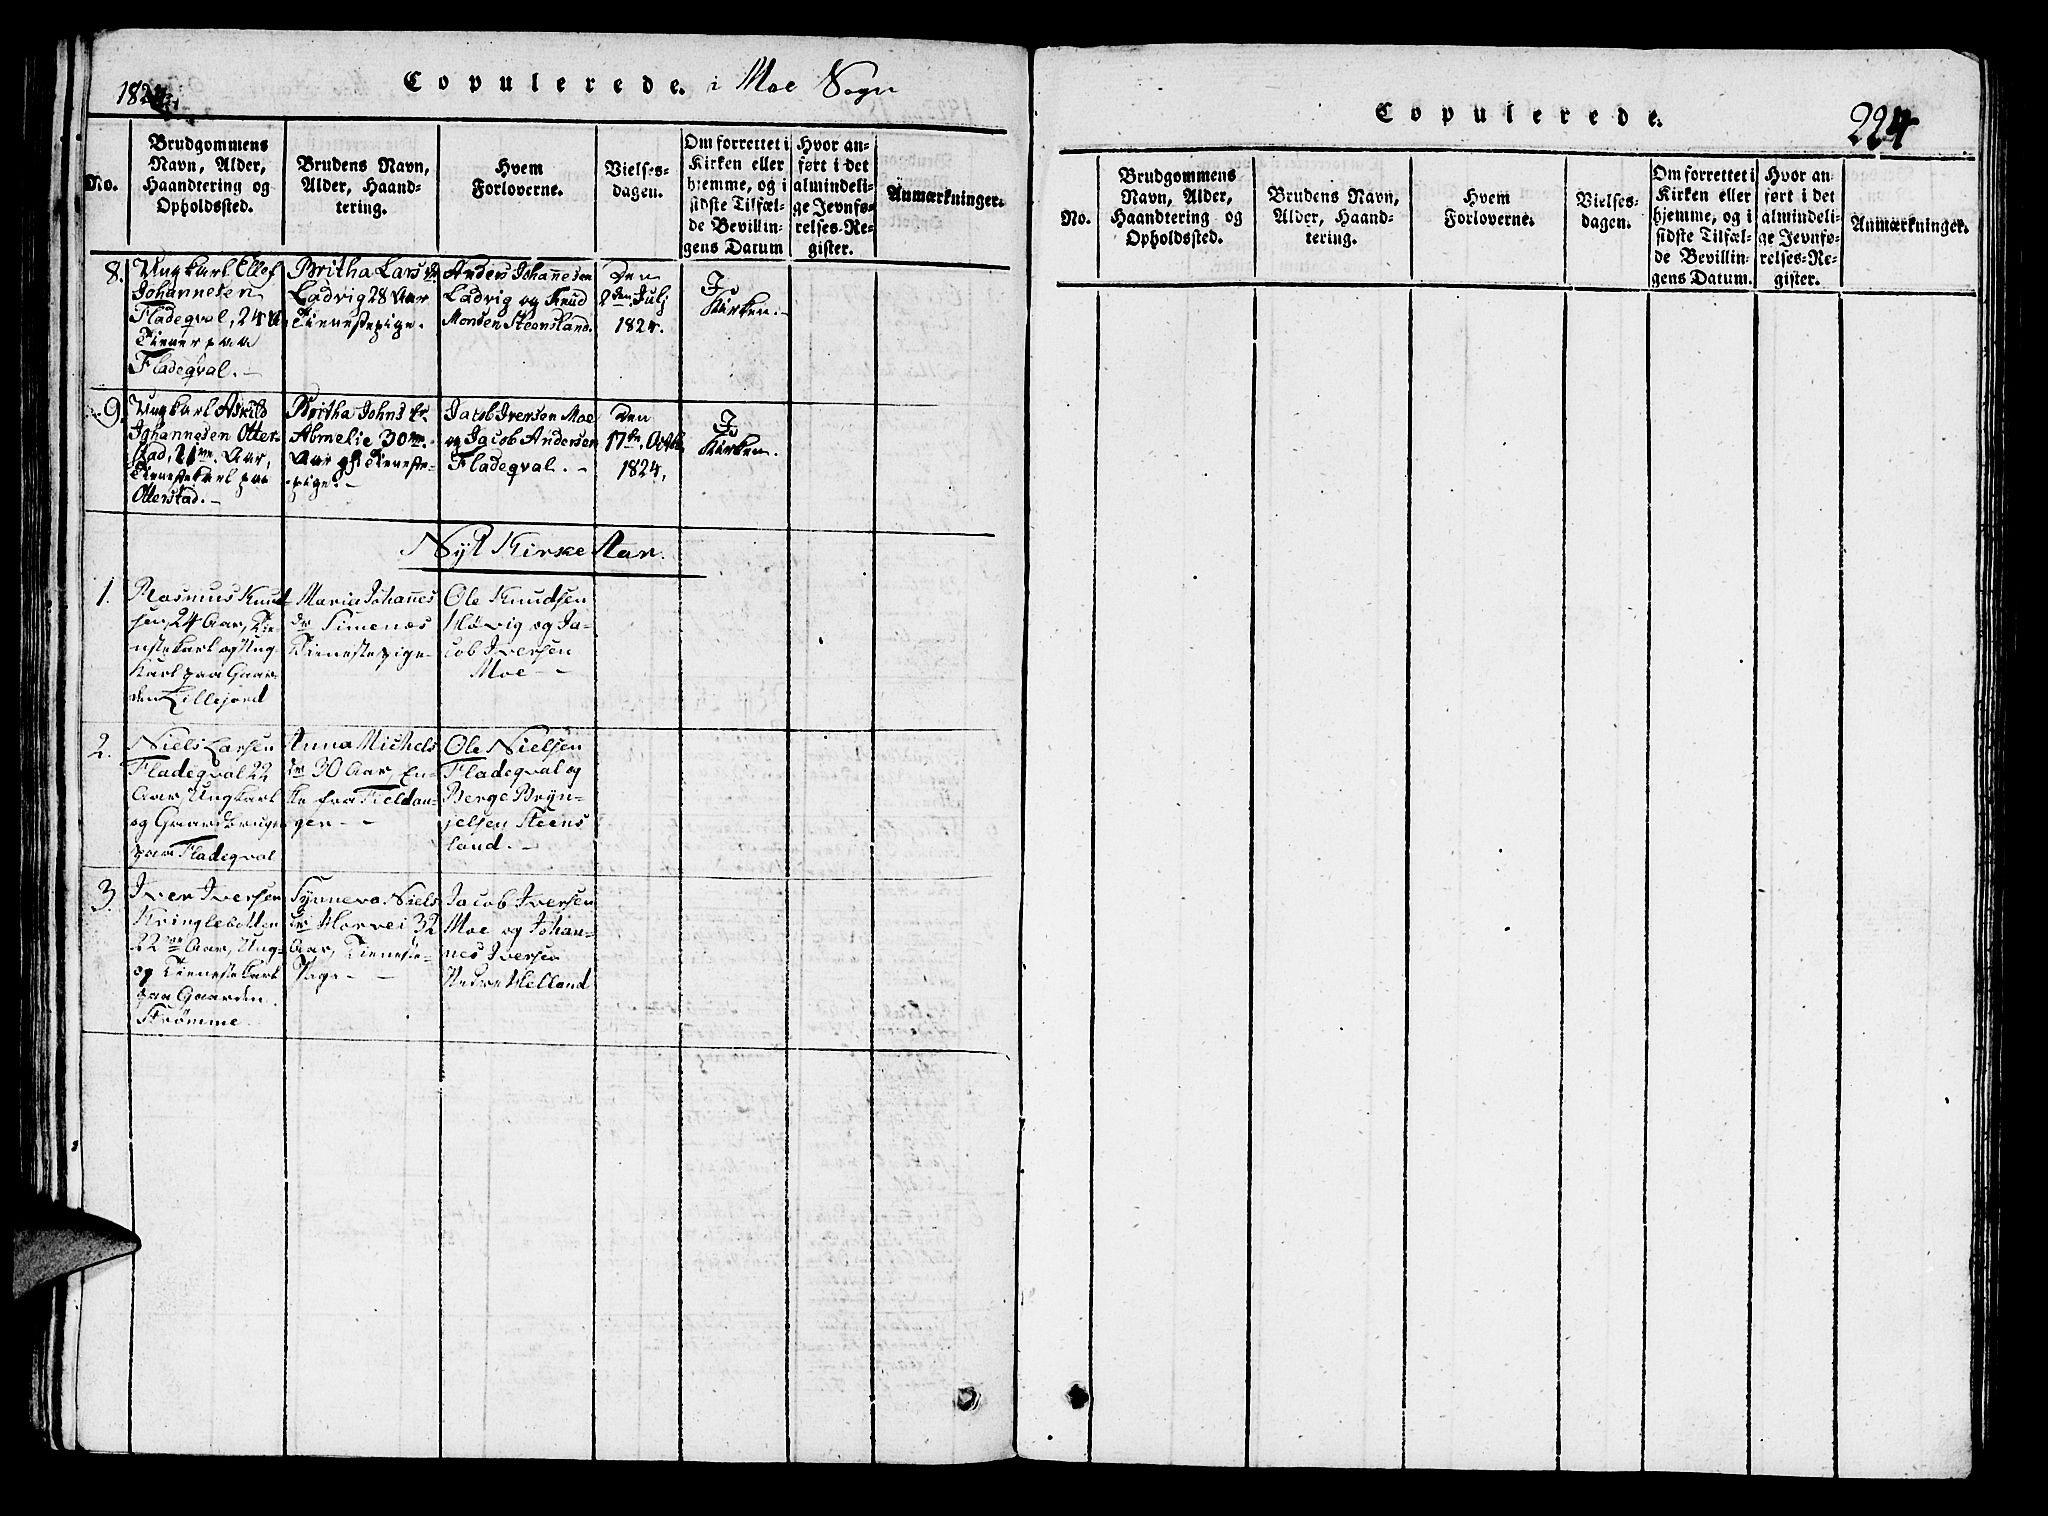 1824
Copulerede. i Moe Sogn
No.
Brudgommens
Navn, Alder,
Haandtering og
Opholdssted.
Brudens Navn,
Alder, Haand-
tering.
Hvem
Forloverne.
Vielses-
dagen.
Om forrettet i
Kirken eller
hjemme, og i
sidste Tilfæl-
de Bevillin-
gens Datum
Hvor an-
ført i det
almindeli-
ge Jevnfø-
relses-Re-
gister.
Anmærkninger.
8.
Ungkarl Ellef
Johannesen
Fladeqval, 24 A
Tiener paa
Fladeqval. -
Britha Lars dr
Ladvig 28 Aar
Tienestepige.
Anders Johanesen
Ladvig og Knud
Monsen Steensland.
Den
2den Julj
1824.
I
Kirken. -
9.
Ungkarl Askild
Johannesen Otter-
stad, 21 Aar,
Tienestekarl paa
Otterstad. -
Britha Johns dr.
Abmelie 30
Aar Tieneste-
-pige. -
Jacob Iversen Moe
og Jacob Andersen
Fladeqval. -
Den
17de Octb
1824,
I
Kirken.
Nyt Kirke Aar.
1.
Rasmus Knud-
sen, 24 Aar, Tie-
nestekarl og Ung-
karl paa Gaar-
den Lillejord
Maria Johanes
dr Simenæs
Tienestepige
Ole Knudsen
Høvig og Ja-
cob Iversen
Moe -
2.
Niels Larsen
Fladeqval 22
Aar, Ungkarl
og Gaardbruger
paa Fladeqval
Anna Michels
dr 30 Aar, En-
ke fra Fieldan-
ger - -
Ole Nielsen
Fladeqval og
Berge Bryn-
jelsen Steens
land. -
3.
Iver Iversen
Kringlebotten
22 Aar, Ung-
og Tienestekarl
paa Gaarden
Strømme
Synneva Niels
dr Horvei 32
Aar, Tieneste-
Pige - -
Jacob Iversen
Moe og Johan-
nes Iversen
Nedre Helland
Copulerede.
224
No.
Brudgommens
Navn, Alder,
Haandtering og
Opholdssted.
Brudens Navn,
Alder, Haand-
tering.
Hvem
Forloverne.
Vielses-
dagen.
Om forrettet i
Kirken eller
hjemme, og i
sidste Tilfæl-
de Bevillin-
gens Datum.
Hvor an-
ført i det
almindeli-
ge Jevnfø-
relses-Re-
gister.
Anmærkninger.